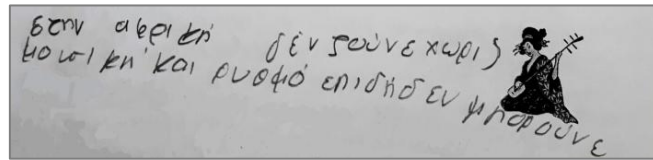 Στην αφρικη δέν ζούνε χωρις
μουσικη και ρυθμό επιδή δεν μπορούνε